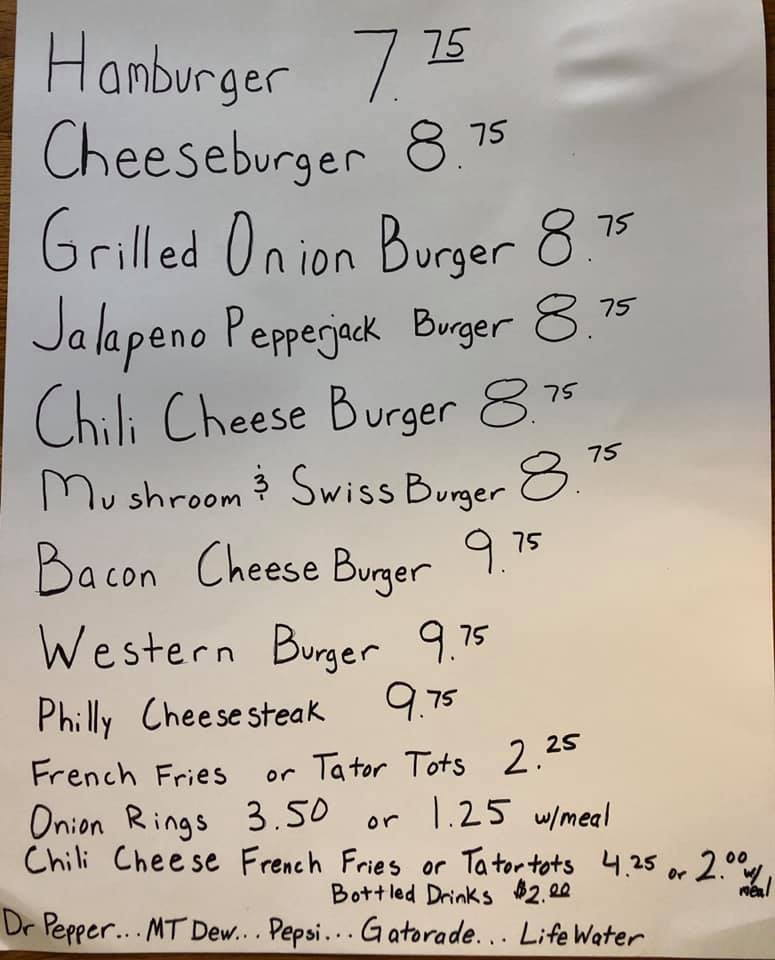 Hamburger 7.75
Cheeseburger 8.75
Grilled Onion Burger 8.75
Jalapeno Pepperjack Burger 8.75
Chili Cheese Burger 8.75
Mushroom & Swiss Burger 8.75
Bacon Cheese Burger 9.75
Western Burger 9.75
Philly Cheesesteak 9.75
French Fries or Tator Tots 2.25
Onion Rings 3.50 or 1.25 w/meal
Chili Cheese French Fries or Tatortots 4.25 or 2.00 w/ meal
Bottled Drinks $2.00
Dr Pepper... MT Dew... Pepsi... Gatorade... Life Water